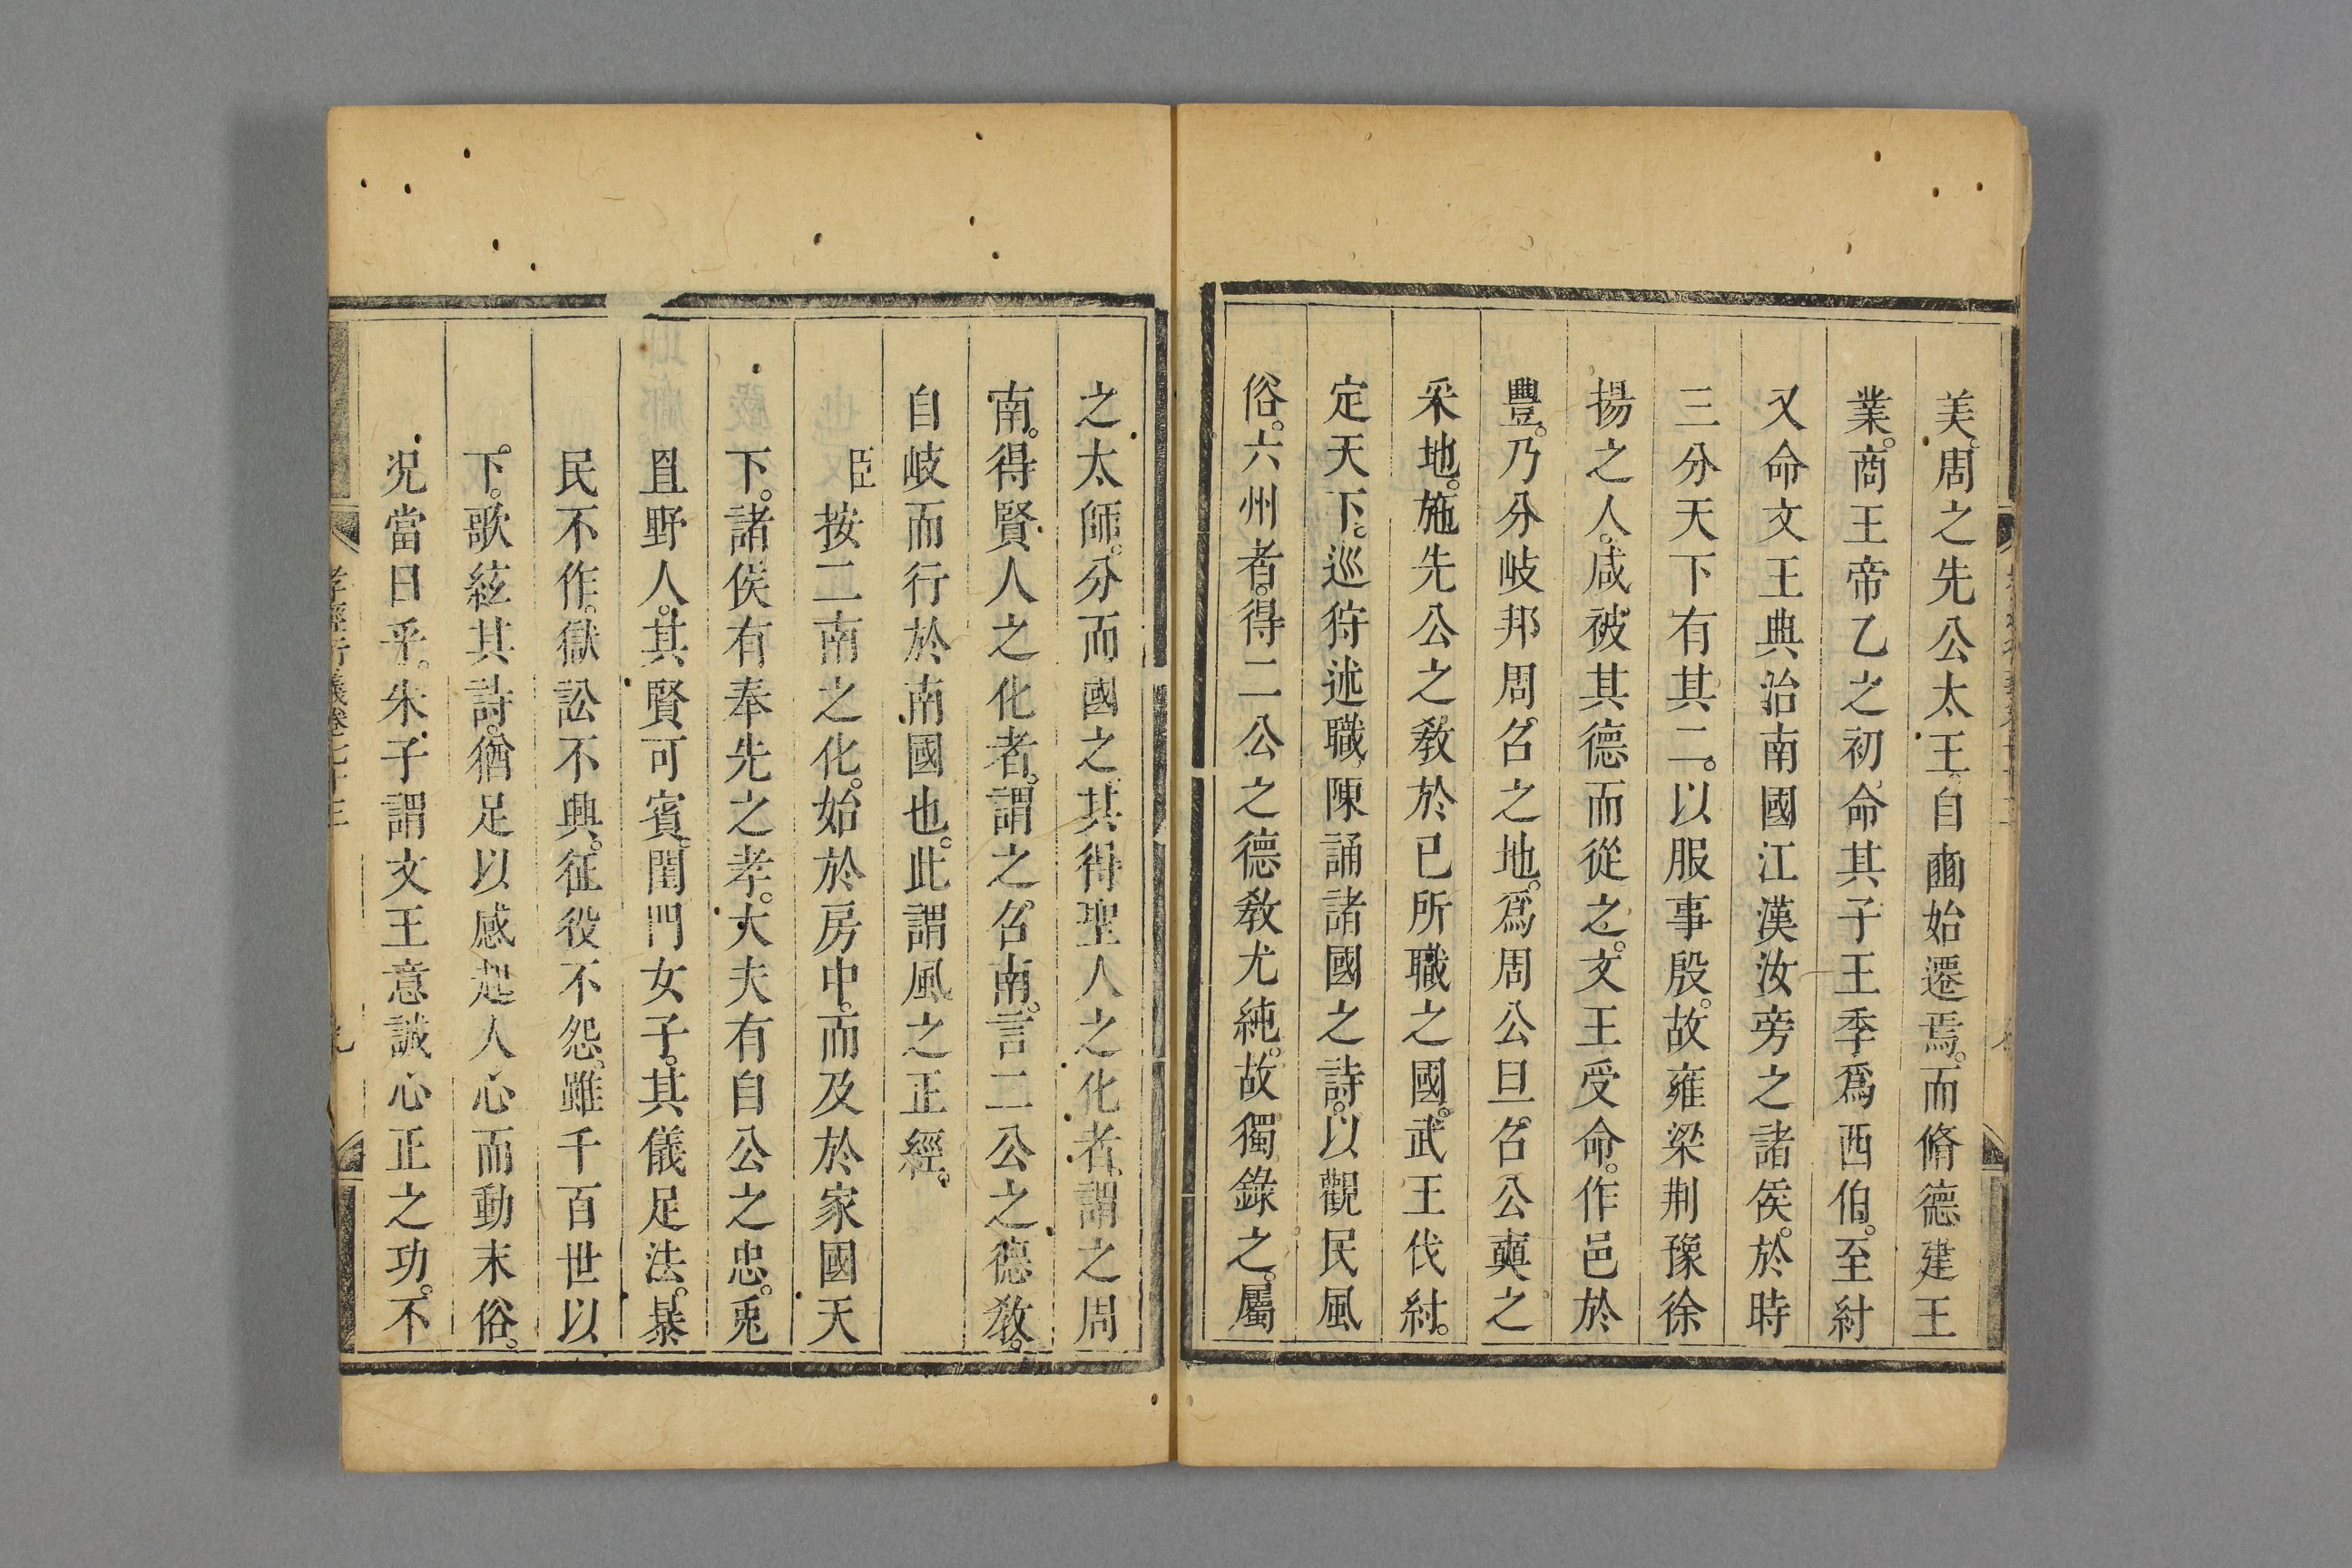 美。周之先公太王。自豳始遷焉。而脩德建王
業。商王帝乙之初。命其子王季爲西伯。至紂
又命文王典治南國江漢汝旁之諸侯。於時
三分天下有其二。以服事殷。故雍梁荆豫徐
揚之人。咸被其德而從之。文王受命。作邑於
豐。乃分岐邦周召之地。爲周公旦。召公奭之
采地。施先公之敎於已所職之國。武王伐紂。
定天下。巡狩述職。陳誦諸國之詩。以觀民風
俗。六州者。得二公之德敎尤純。故獨錄之。屬
之太師。分而國之。其得聖人之化者。謂之周
南。得賢人之化者。謂之召南。言二公之德敎。
自岐而行於南國也。此謂風之正經。
臣按二南之化。始於房中。而及於家國天
下。諸侯有奉先之孝。大夫有自公之忠。兎
罝野人。其賢可賓。閨門女子。其儀足法。暴
民不作。獄訟不興。征役不怨。雖千百世以
下。歌絃其詩。猶足以感起人心而動末俗。
況當日乎。朱子謂文王意誠心正之功。不
孝經衍義卷七十三